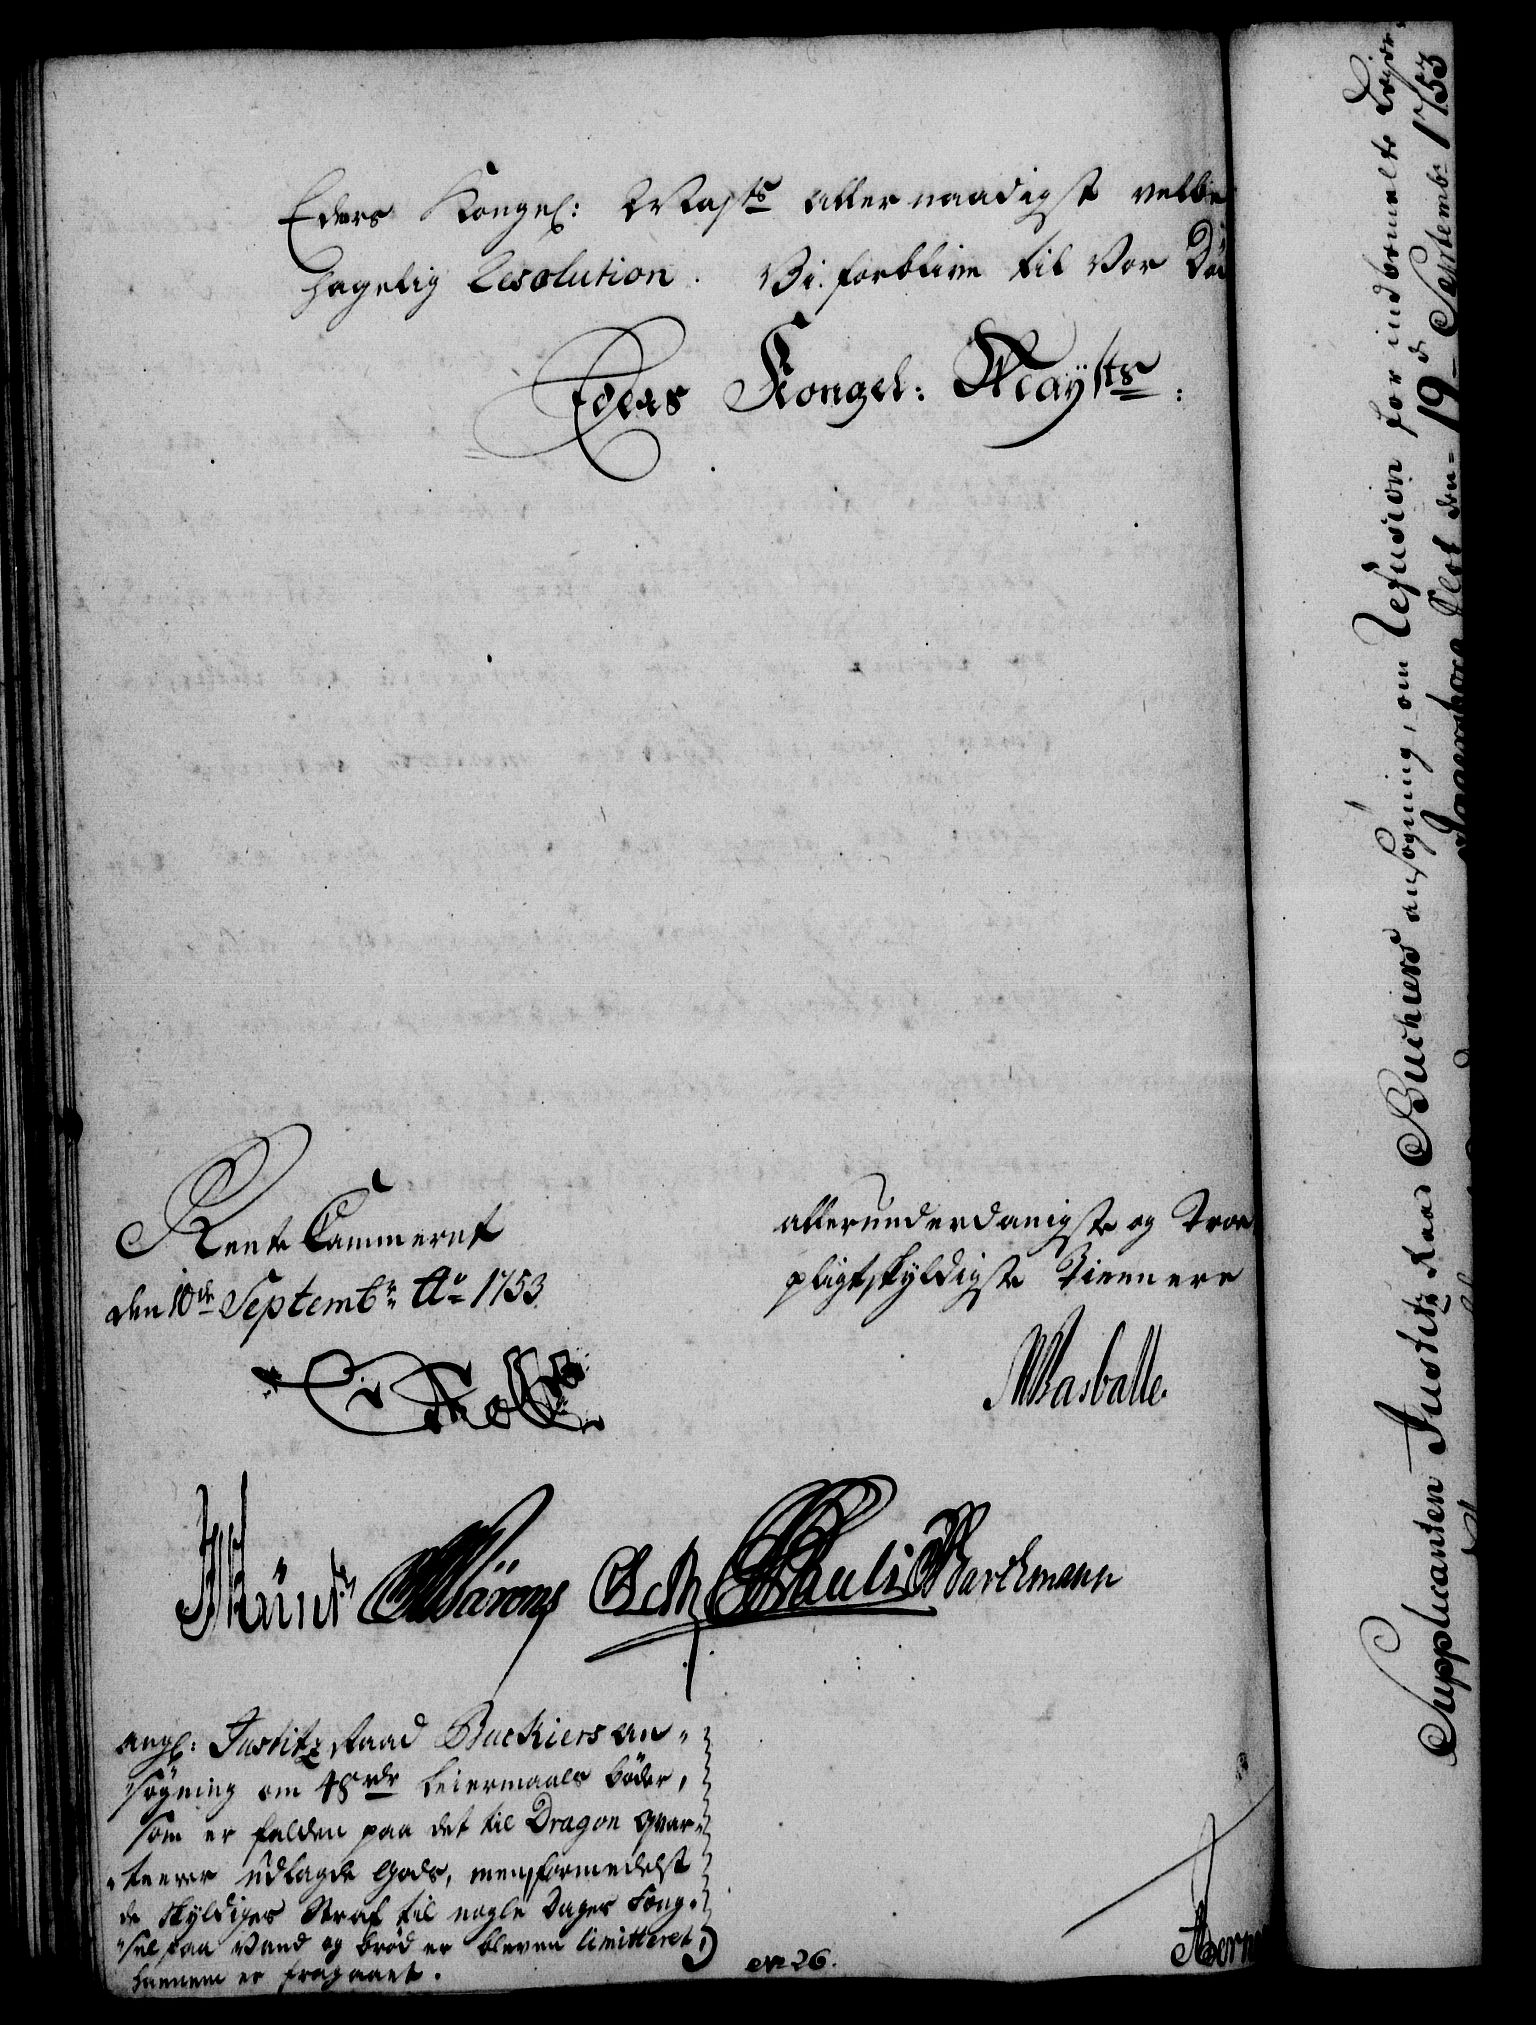 Eders Kongel: Mayts allernaadigst velbe
hagelig Resolution. Vi forblive til Vor Dö
Eders Kongel: Mayts:
Rente Cammeret
den 10de Septembr: Ao 1753
allerunderdanigste og Troe
pligtskyldigste Tienere
Holst
MWasballe.
Münt Wärons Esch Pauli Barchmann
angl: Justitz Raad Buchiers an-
søgning om 48 rdr Leiermaals bøder,
som er falden paa det til Dragon qvar-
teerer udlagde Gods, men formedelst
de skyldiges Straf til nogle Dages Fæng-
sel paa Vand og brød er bleven limitteret,
hannem er fragaaet.
No 26.
Supplicanten Justitz Raad Buchiers ansøgning, om Refusion for indbemelte Leyer
Jægersborg Slot den 19d Septemb: 1753